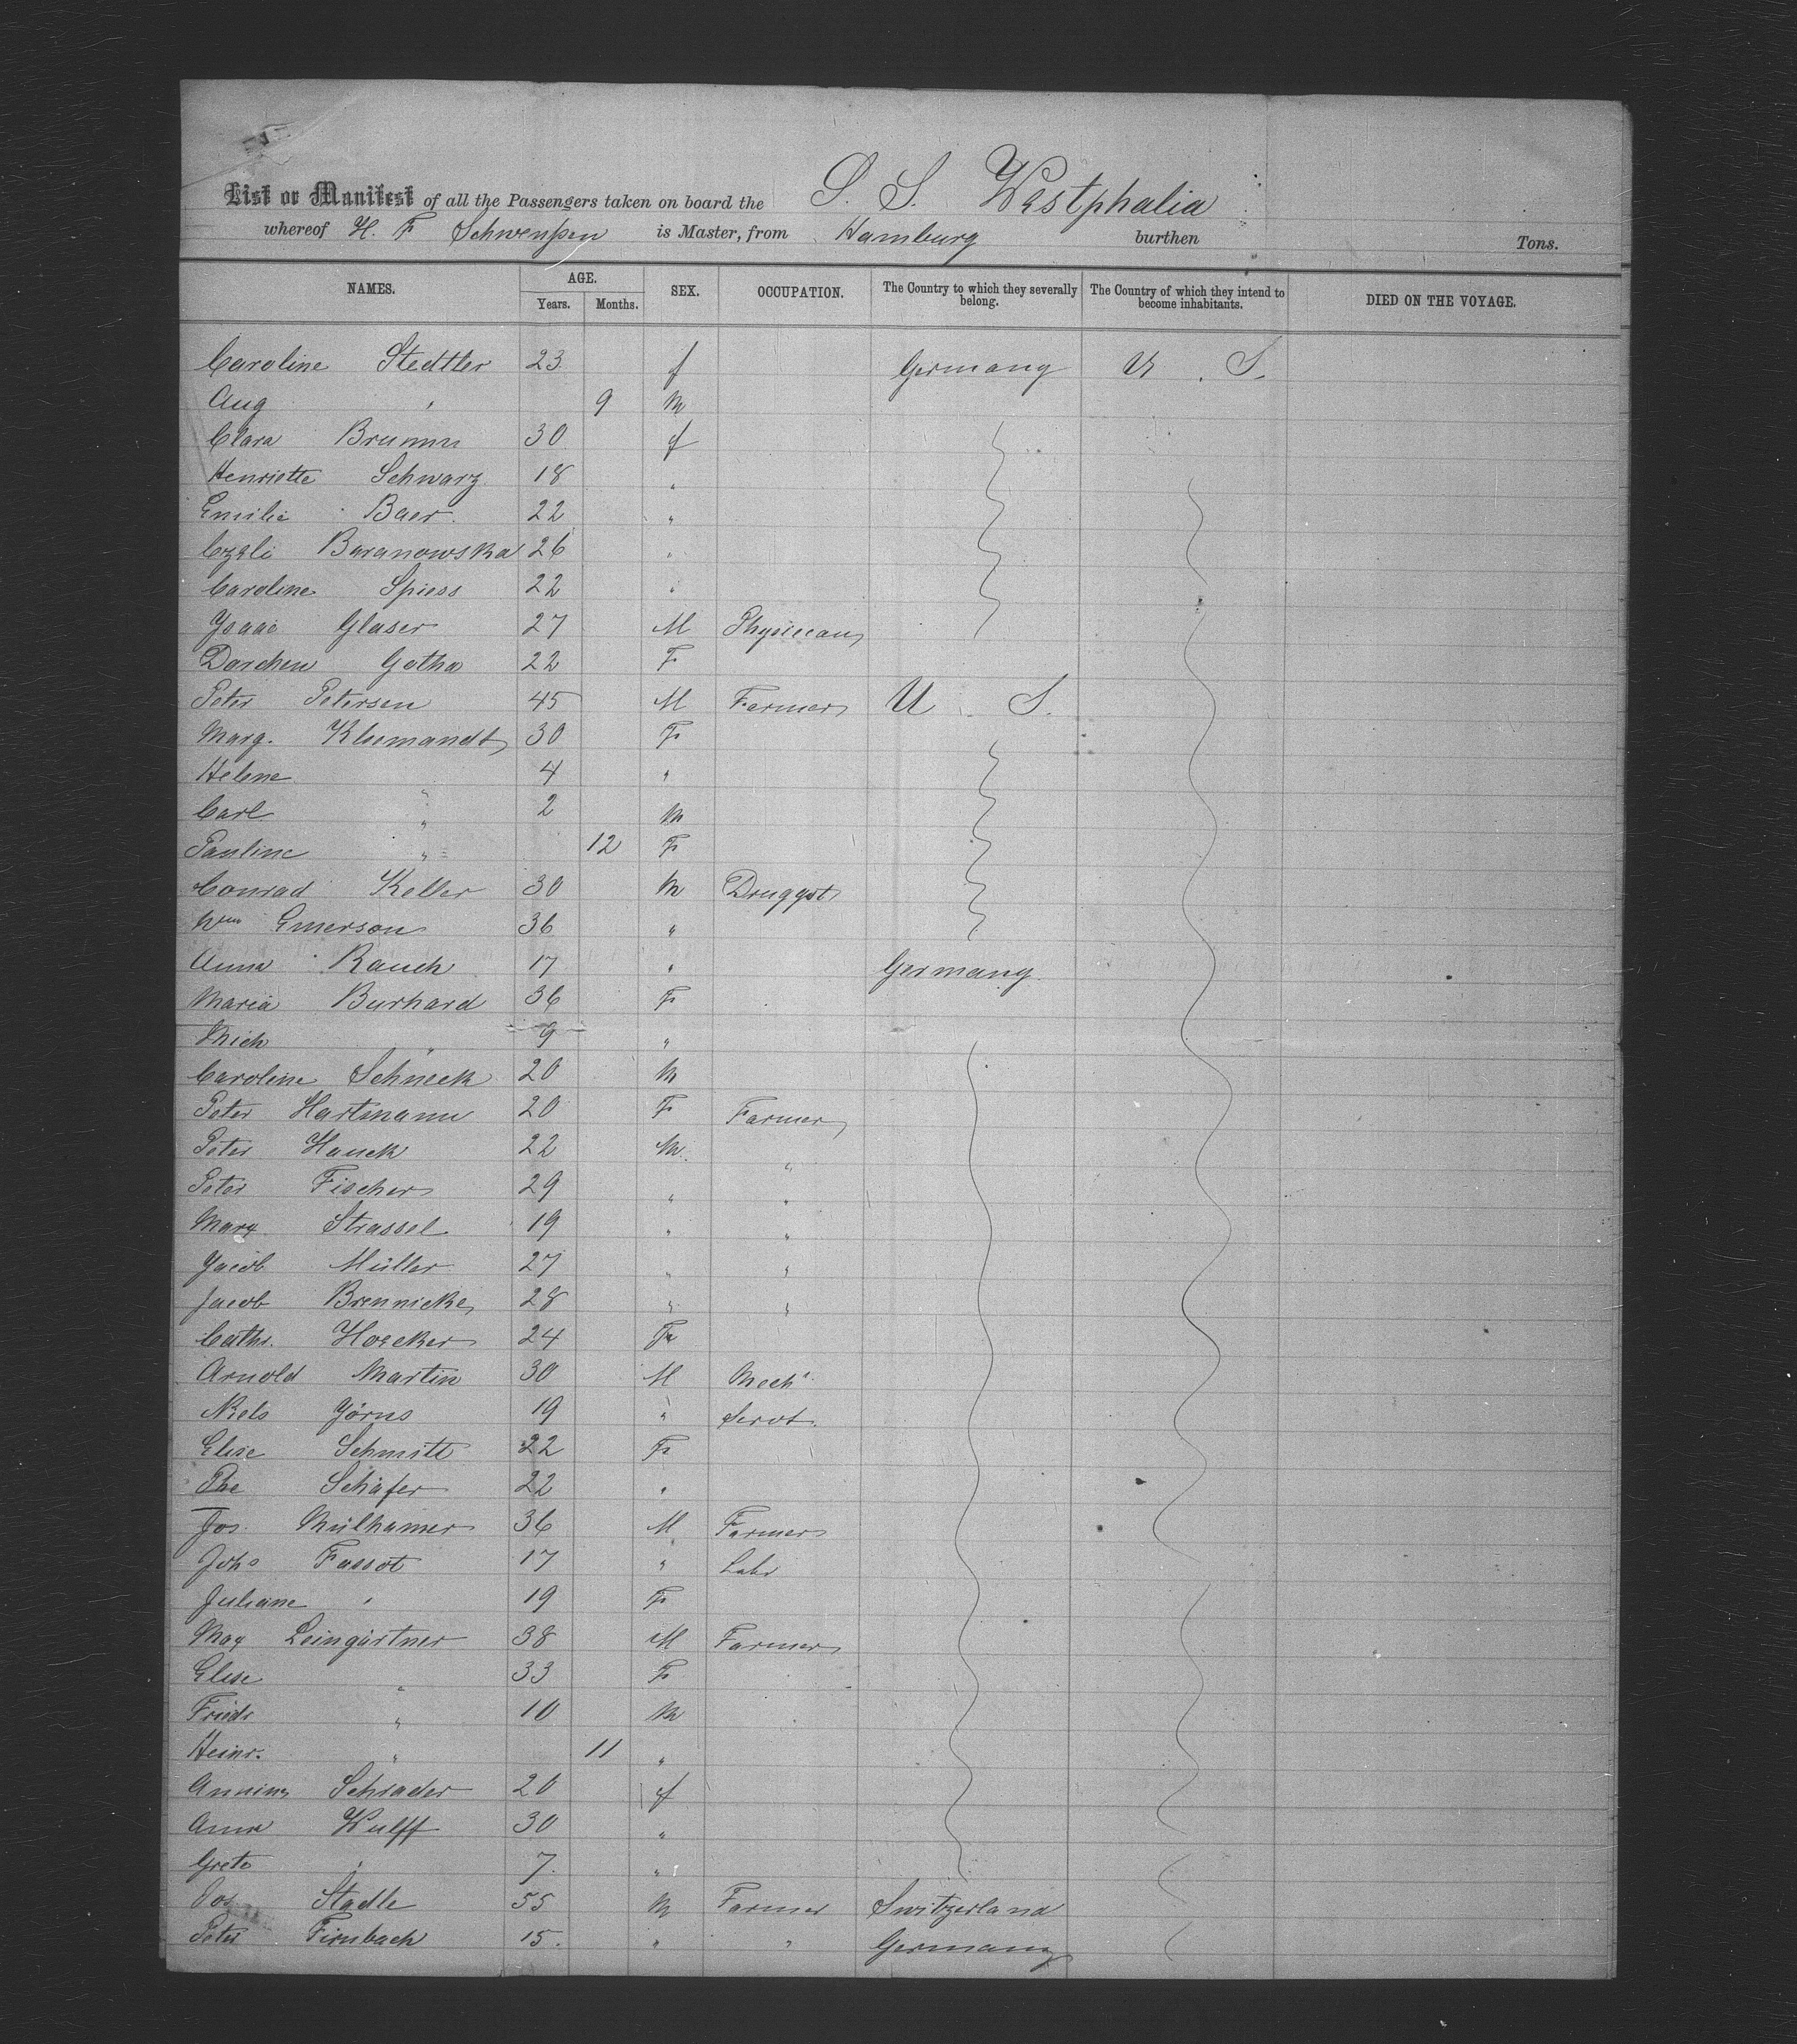 List or Manifest of all the Passengers taken on board the S. S. Westphalia
whereof H. F Schwensen is Master, from Hamburg burthen Tons.
NAMES. AGE. Years. Months. SEX. OCCUPATION. The Country to which they severally belong. The Country of which they intend to become inhabitants. DIED ON THE VOYAGE.
Caroline Stedtler 23 f Germany U. S.
Aug " 9 M
Clara Brumm 30 f
Henriette Schwarz 18 "
Emilie Baer 22 "
Baranowska 26 "
Caroline Spiess 22 "
Ysaac Glaser 27 M Physician
Dorchen Gotha 22 F
Peter Petersen 45 M Farmer U. S.
Marg. Kleemandt 30 F
Helene " 4 "
Carl " 2 M
Pauline " 12 F
Conrad Keller 30 M Druggst
Wm Emerson 36 "
Anna Rauch 17 " Germany
Maria Burhard 36 F
Mich " 9 "
Caroline Schneck 20 M
Peter Hartmann 20 F Farmer
Peter Hauck 22 M "
Peter Fischer 29 " "
Marg Strassel 19 " "
Yacob Müller 27 " "
Jacob Brennicke 28 " "
Cathr. Hoecker 24 F
Arnold Martin 30 M Mech"
Niels Jörns 19 " Servt.
Elise Schmitt 22 F
Phe Schäfer 22 "
Jos. Mülhamer 36 M Farmer
Johs Fassot 17 " Labr
Juliane " 19 F
Max Leingärtner 38 M Farmer
Elise " 33 F
Friedr " 10 M
Heinr. " 11 "
Schrader 20 f
Anna Wulff 30 "
Grete " 7. "
Jos Stadle 55 M Farmer Switzerland
Peter Firnbach 15. " " Germany